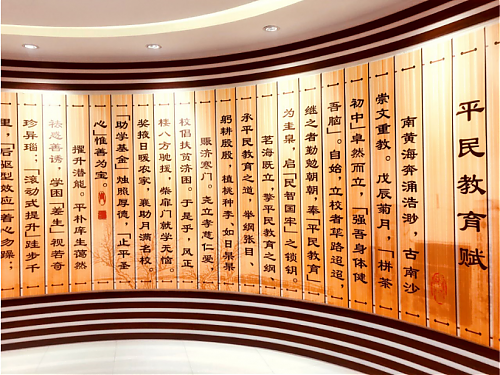 平民教育赋
南黄海奔涌浩渺，古南沙
崇文重教。戊辰菊月，「栟茶
初中卓然而立，「强吾身体健
吾脑」。自始，立校者筚路迢迢，
继之者勤勉朝朝，奉「平民教育」
为圭臬，启「民智国牢」之锁钥。
茗海既立，擎平民教育之纲
永平民教育之道，举纲张目
躬耕殷殷，植桃种李，如日杲杲
赈济寒门。尧立孝悌仁爱，
校倡扶贫济困。于是乎，风正
柱八方驰援，柴扉门就学无恼。
奖掖日暖农家，襄助月满名校。
「助学基金」烛照厚德，「止平圣
心」惟善为宝。
擢升潜能。平朴庠生蔼然
祛慈善诱，学困「差生」视若奇
珍异瑙；「滚动式提升」跬步千
里，「后驱型效应」善心勿躁；